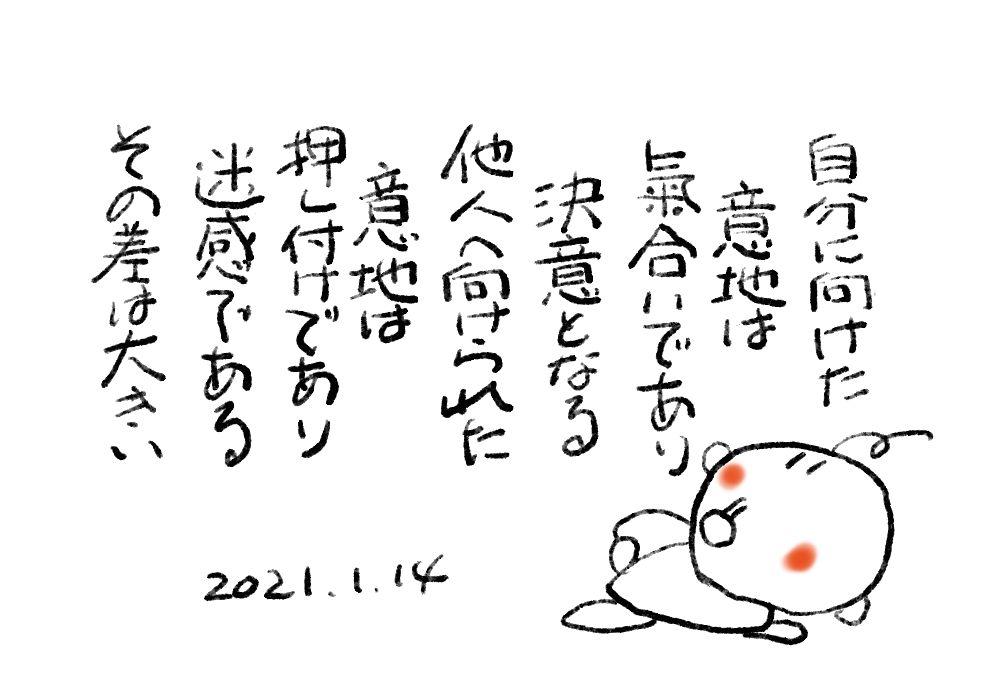 自分に向けた
意地は
氣合いであり
決意となる
他人へ向けられた
意地は
押し付けであり
迷惑である
その差は大きい
2021.1.14